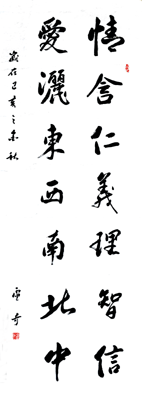 情含仁義理智信
愛灑東西南北中
歲在己亥之末秋